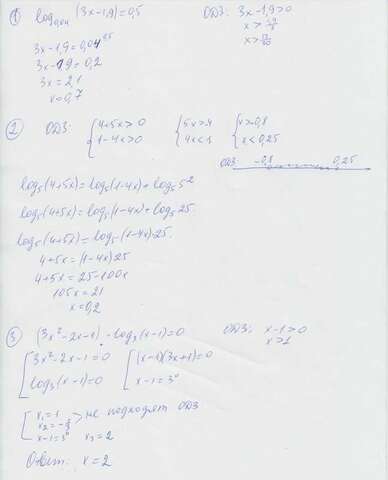 1 log₀,₀₄ (3x-1,9)=0,5 ОДЗ: 3x-1,9>0
x > 1,9/3
3x-1,9=0,04^0,5 x > 19/30
3x-1,9=0,2
3x=2,1
x=0,7
2 ОДЗ { 4+5x>0 { 5x>4 { x>0,8
1-4x>0 4x<1 x<0,25
ОДЗ -0,8 0,25
log₅(4+5x)=log₅(1-4x)+log₅5²
log₅(4+5x)=log₅(1-4x)+log₅25
log₅(4+5x)=log₅(1-4x)·25
4+5x=(1-4x)25
4+5x=25-100x
105x=21
x=0,2
3 (3x²-2x-1)·log₃(x-1)=0 ОДЗ: x-1>0
x>1
[ 3x²-2x-1=0 [ (x-1)(3x+1)=0
log₃(x-1)=0 x-1=3⁰
[ x₁=1 > не подходят ОДЗ
x₂=-1/3
x-1=3⁰ x₃=2
Ответ: x=2